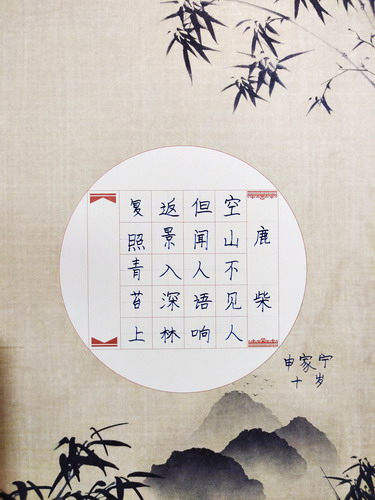 鹿柴
空山不见人
但闻人语响
返景入深林
复照青苔上
申家宁
十岁